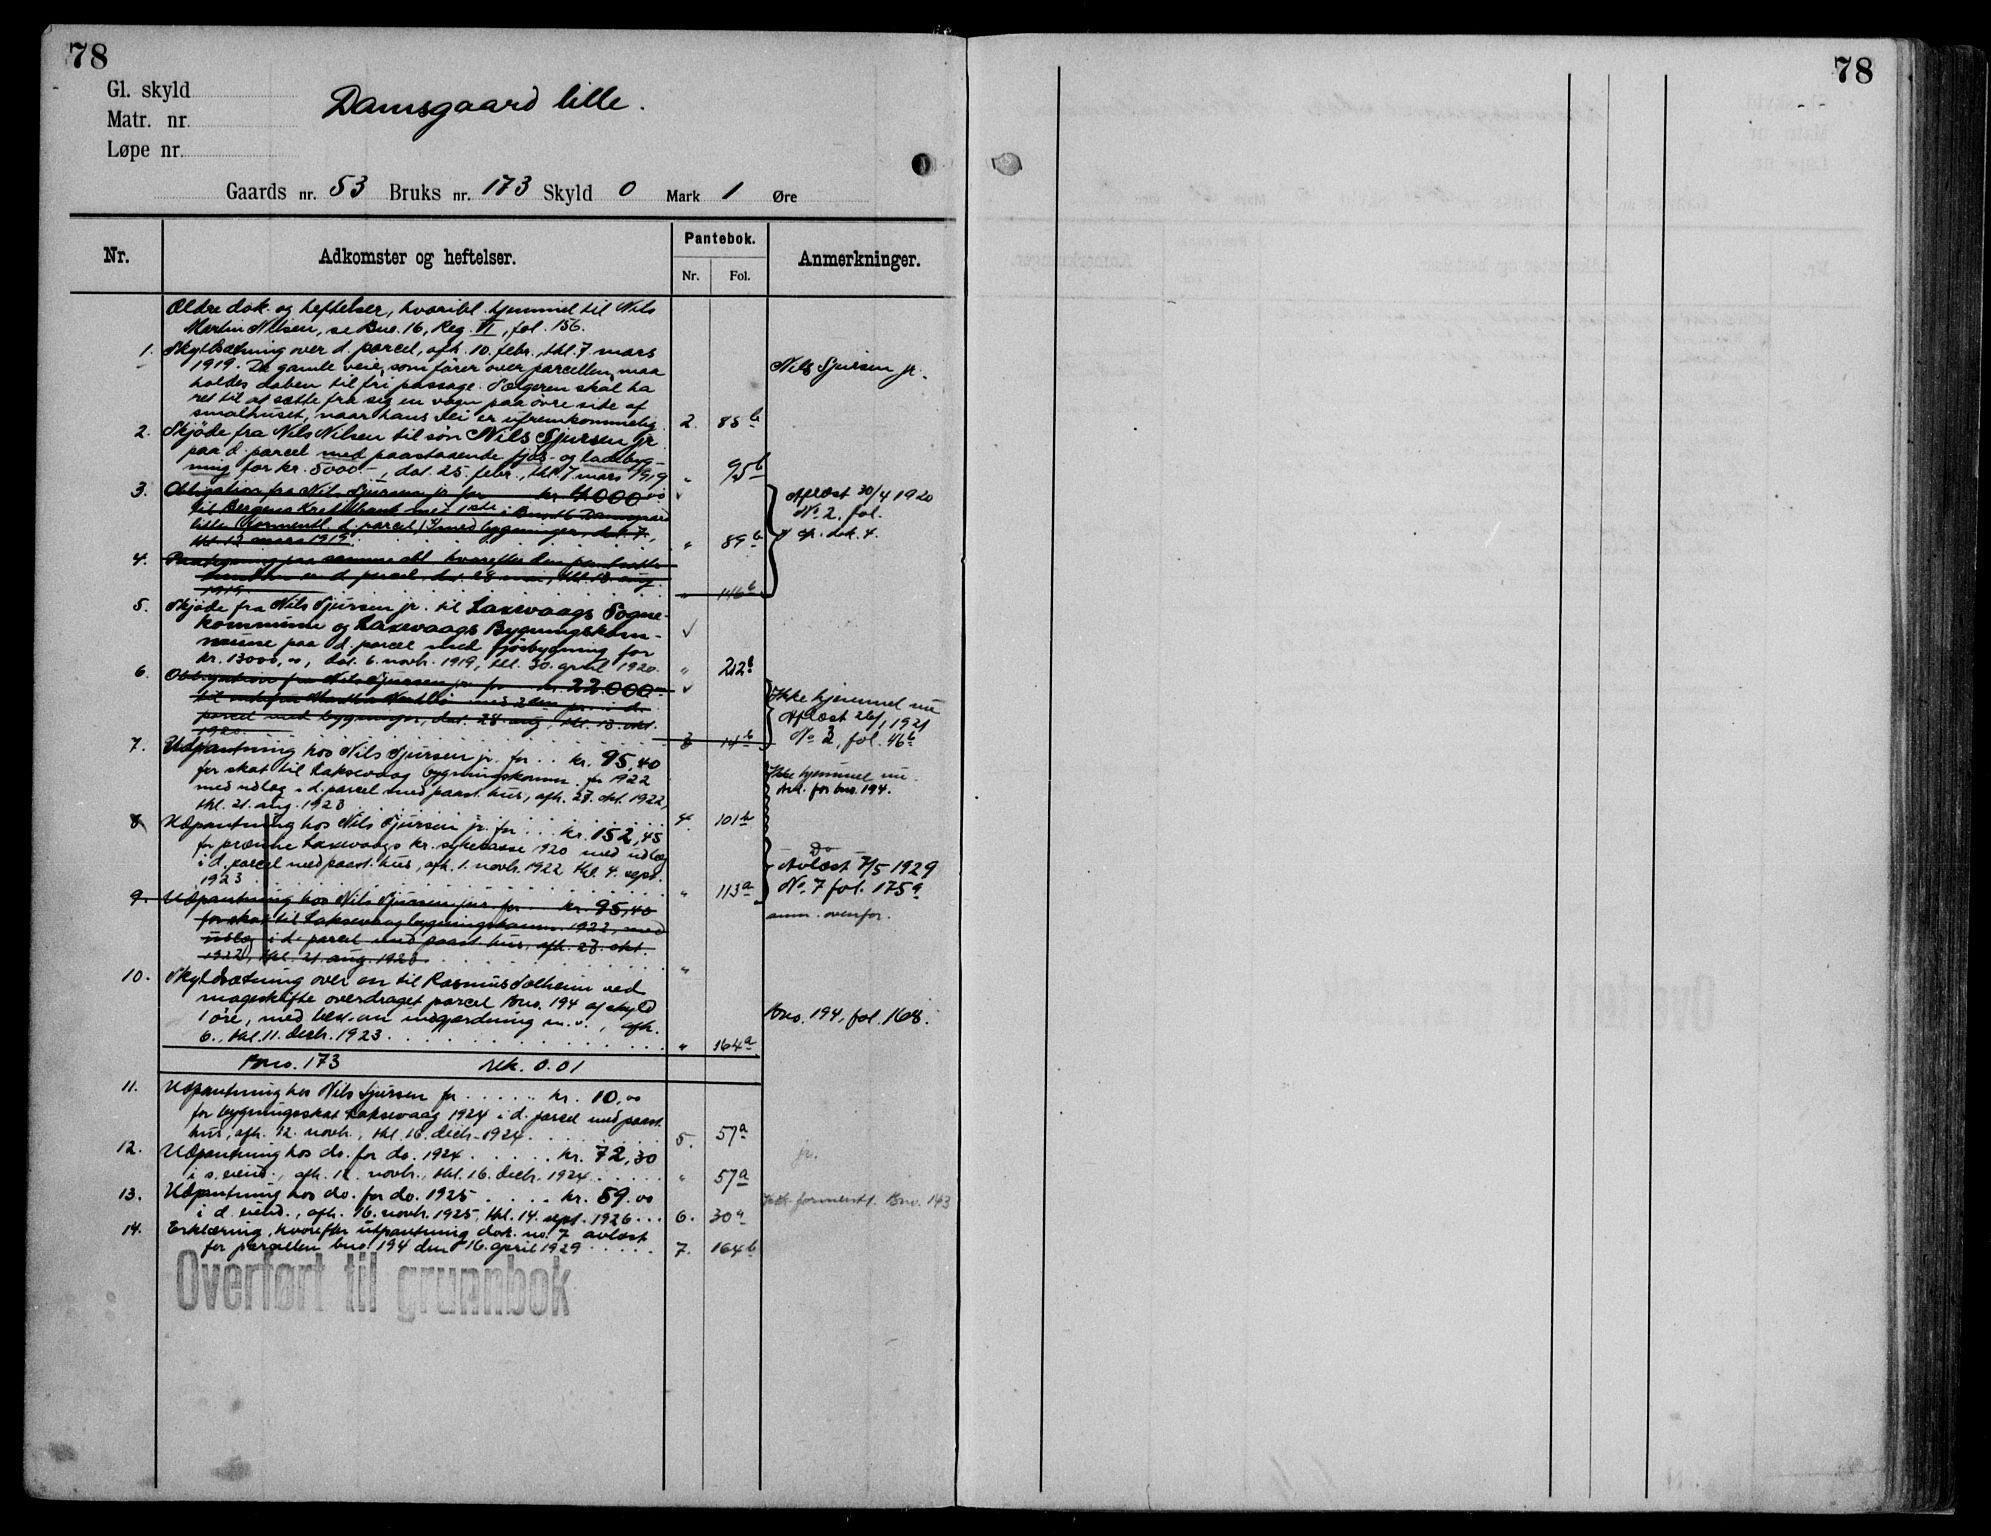 78
78
Gl. skyld
Matr. nr.
Løpe nr.
Damsgaard lille.
Gaards nr. 53 Bruks nr. 173 Skyld 0 Mark 1 Øre
Nr. Adkomster og heftelser. Pantebok. Anmerkninger.
Nr. Fol.
Ældre dok. og heftelser, hvoribl. hjemmel til Nils
Martin Nilsen, se Bno. 16, Reg. VI, fol. 156.
1. Skyldsætning over d. parcel, afh. 10. febr., thl. 7. mars
1919. De gamle veie, som fører over parcellen, maa
holdes aaben til fri passage. Sælgeren skal ha
ret til at sætte fra sig en vogn paa øvre side af
smalhuset, naar hans vei er ufremkommelig. 2. 85 b
Nils Sjursen jr.
2. Skjøde fra Nils Nilsen til søn Nils Sjursen jr
paa d. parcel med paastaaende fjøs- og ladebyg-
ning for kr. 5000 -, dat. 25 febr., thl. 7 mars 1919 " 95 b
3. Obligation fra Nils Sjursen jr. for kr. 4000 00
til Bergens Kreditbank med 1ste i Bno 16 Damsgaard
lille (formentl. d. parcel) med bygninger, dat. 7.,
thl. 12 mars 1919. " 89 b
Aflæst 30/4 1920
No 2, fol.
cfr. dok. 4.
4. Paategning paa samme obl. hvorefter den pantsatte
eiendom er d. parcel, dat. 28 mai, thl. 13 aug.
1919. " 146 b
5. Skjøde fra Nils Sjursen jr. til Laxevaags Sogne-
kommune og Laxevaags Bygningskom-
mune paa d. parcel med fjøsbygning for
kr. 13000,00, dat. 6. novb. 1919, thl. 30. april 1920. " 212 b
6. Obligation fra Nils Sjursen jr. for kr. 22.000 -
til enkefru Martha med 2den pr. i d.
parcel med bygninger, dat. 28. aug., thl. 13. okt.
1920. 3 14 b
Ikke hjemmel nu
Aflæst 26/1 1921
No 3, fol. 46 b
7. Udpantning hos Nils Sjursen jr. for .. kr. 95,40
for skat til Laksevaag bygningskomm. for 1922
med udlæg i d. parcel med paast. hus, afh. 27. okt. 1922,
thl. 21. aug. 1923. 4. 101 b
Ikke hjemmel nu.
Avl. for bno. 194.
8. Udpantning hos Nils Sjursen jr. for ... kr. 152,45
for præmie Laxevaags kr. sykekasse 1920 med udlæg
i d. parcel med paast. hus, afh. 1. novb. 1922 thl. 4. sept.
1923. " 113 a
Do
Avlæst 7/5 1929
No. 7 fol. 175 a
9. Udpantning hos Nils Sjursen jun. for kr. 95,40
for skat til Laksevaag bygningskomm. 1922, med
udlæg i d. parcel med paast. hus, afh. 27. okt.
1922, thl. 21. aug. 1923. "
anm. ovenfor.
10. Skyldsætning over en til Rasmus Solheim ved
mageskifte overdraget parcel Bno. 194 af skyld
1 øre, med best. om indgjerdning m. v., afh.
6., thl. 11. decb. 1923. " 164 a
Bno. 194, fol. 168.
Bno. 173 rek. 0.01
11. Udpantning hos Nils Sjursen for ..... kr. 10,00
for bygningsskat Laksevaag 1924 i d. parcel med paast.
hus, afh. 12. novb., thl. 16. decb. 1924. 5. 57 a
12. Udpantning hos do. for do. 1924 ..... kr. 72,30
i s. eiend., afh. 12. novb., thl. 16. decb. 1924. " 57 a
jr.
13. Udpantning hos do. for do. 1925 .... kr. 59.00
i d. eiend., afh. 16. novb. 1925, thl. 14. sept. 1926 ... 6. 30 a
formentl. Bno. 143
14. Erklæring, hvorefter utpantning dok. no. 7 avlæst
for parcellen bno. 194 den 16. april 1929 ..... 7. 164 b
Overført til grunnbok